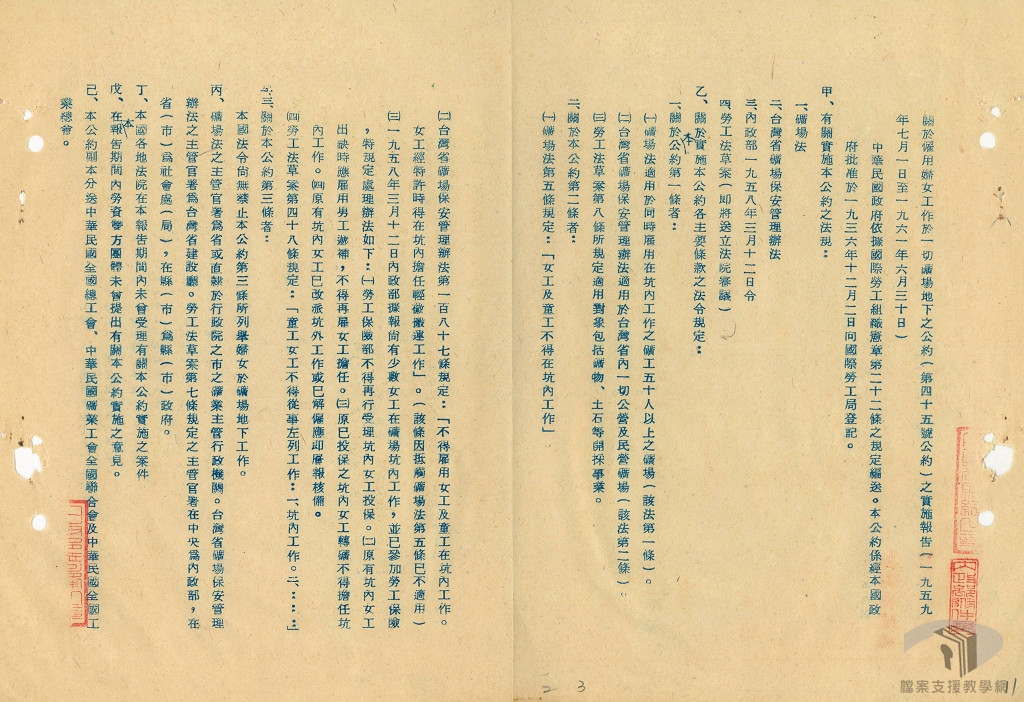 關於僱用婦女工作於一切礦場地下之公約(第四十五號公約)之實施報告(一九五九
年七月一日至一九六一年六月三十日)
中華民國政府依據國際勞工組織憲章第二十二條之規定編送。本公約係經本國政
府批准于一九三六年十二月二日向國際勞工局登記。
甲、有關實施本公約之法規:
一、礦場法
二、台灣省礦場保安管理辦法
三、內政部一九五八年三月十二日令
四、勞工法草案(即將送立法院審議)
乙、關於實施本公約各主要條款之法令規定:
一、關於本公約第一條者:
㈠礦場法適用於同時雇用在坑內工作之礦工五十人以上之礦場(該法第一條)。
㈡台灣省礦場保安管理辦法適用於台灣省內一切公營及民營礦場(該法第二條)。
㈢勞工法草案第八條所規定適用對象包括礦物、土石等開採事業。
二、關於本公約第二條者:
㈠礦場法第五條規定:「女工及童工不得在坑內工作」
㈡台灣省礦場保安管理辦法第一百八十七條規定:「不得雇用女工及童工在坑內工作。
女工經特許時得在坑內擔任輕微搬運工作」。(該條因抵觸礦場法第五條已不適用)
㈢一九五八年三月十二日內政部據報尚有少數女工在礦場坑內工作,並已參加勞工保險
,特規定處理辦法如下:㈠勞工保險部不得再行受理坑內女工投保。㈡原有坑內女工
出缺時應雇用男工遞補,不得再雇女工擔任。㈢原已投保之坑內女工轉礦不得擔任坑
內工作。㈣原有坑內女工已改派坑外工作或已解僱應即層報核備。
㈣勞工法草案第四十八條規定:「童工女工不得從事左列工作:一、坑內工作。二、……」
三、關於本公約第三條者:
本國法令尚無禁止本公約第三條所列舉婦女於礦場地下工作。
丙、礦場法之主管官署為省或直隸於行政院之市之礦業主管行政機關。台灣省礦場保安管理
辦法之主管官署為台灣省建設廳。勞工法草案第七條規定之主管官署在中央為內政部,在
省(市)為社會處(局),在縣(市)為縣(市)政府。
丁、本國各地法院在本報告期間內未曾受理有關本公約實施之案件
戊、在本報告期間內勞資雙方團體未曾提出有關本公約實施之意見。
己、本公約副本分送中華民國全國總工會、中華民國礦業工會全國聯合會及中華民國全國工
業總會。
二 3
11
檔案支援教學網